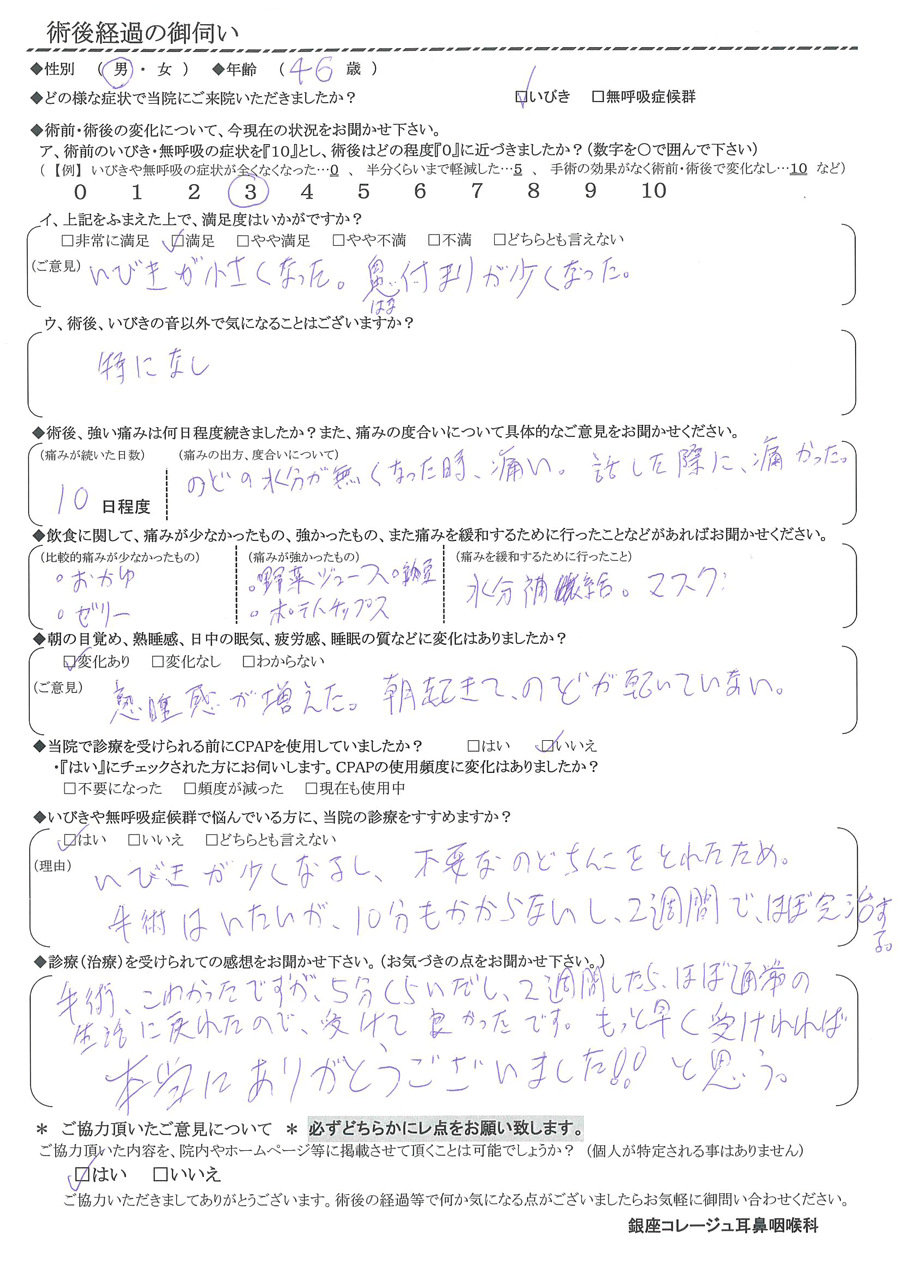 術後経過の御伺い
◆性別 （ 男 ・ 女 ） ◆年齢 （ 46 歳 ）
◆どの様な症状で当院にご来院いただきましたか？ □いびき □無呼吸症候群
◆術前・術後の変化について、今現在の状況をお聞かせ下さい。
ア、術前のいびき・無呼吸の症状を『10』とし、術後はどの程度『0』に近づきましたか？（数字を〇で囲んで下さい）
（【例】 いびきや無呼吸の症状が全くなくなった…0 、 半分くらいまで軽減した…5 、 手術の効果がなく術前・術後で変化なし…10 など）
0 1 2 3 4 5 6 7 8 9 10
イ、上記をふまえた上で、満足度はいかがですか？
□非常に満足 □満足 □やや満足 □やや不満 □不満 □どちらとも言えない
（ご意見） いびきが小さくなった。鼻付まりが少くなった。
はな
ウ、術後、いびきの音以外で気になることはございますか？
特になし
◆術後、強い痛みは何日程度続きましたか？また、痛みの度合いについて具体的なご意見をお聞かせください。
（痛みが続いた日数） （痛みの出方、度合いについて）
のどの水分が無くなった時、痛い。話した際に、痛かった。
10 日程度
◆飲食に関して、痛みが少なかったもの、強かったもの、また痛みを緩和するために行ったことなどがあればお聞かせください。
（比較的痛みが少なかったもの） （痛みが強かったもの） （痛みを緩和するために行ったこと）
。おかゆ 。野菜ジュース。納豆 水分補給。マスク
。ゼリー 。ポテトチップス
◆朝の目覚め、熟睡感、日中の眠気、疲労感、睡眠の質などに変化はありましたか？
□変化あり □変化なし □わからない
（ご意見） 熟睡感が増えた。朝起きて、のどが乾いていない。
◆当院で診療を受けられる前にCPAPを使用していましたか？ □はい □いいえ
・『はい』にチェックされた方にお伺いします。CPAPの使用頻度に変化はありましたか？
□不要になった □頻度が減った □現在も使用中
◆いびきや無呼吸症候群で悩んでいる方に、当院の診療をすすめますか？
□はい □いいえ □どちらとも言えない
（理由） いびきが少くなるし、不要なのどちんこをとれたため。
手術はいたいが、10分もかからないし、2週間で、ほぼ完治する。
◆診療（治療）を受けられての感想をお聞かせ下さい。（お気づきの点をお聞かせ下さい。）
手術、こわかったですが、5分くらいだし、2週間したら、ほぼ通常の
生活に戻れたので、受けて良かったです。もっと早く受けれれば
と思う。
本当にありがとうございました!!
＊ ご協力頂いたご意見について ＊ 必ずどちらかにレ点をお願い致します。
ご協力頂いた内容を、院内やホームページ等に掲載させて頂くことは可能でしょうか？ （個人が特定される事はありません）
□はい □いいえ
ご協力いただきましてありがとうございます。術後の経過等で何か気になる点がございましたらお気軽に御問い合わせください。
銀座コレージュ耳鼻咽喉科